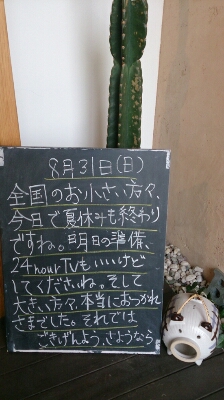 8月31日(日)
全国のお小さい方々、
今日で夏休みも終わり
ですね。明日の準備、
24hour TVもいいけど
してくださいね。そして
大きい方々、本当におつかれ
さまでした。それでは
ごきげんよう、さようなら